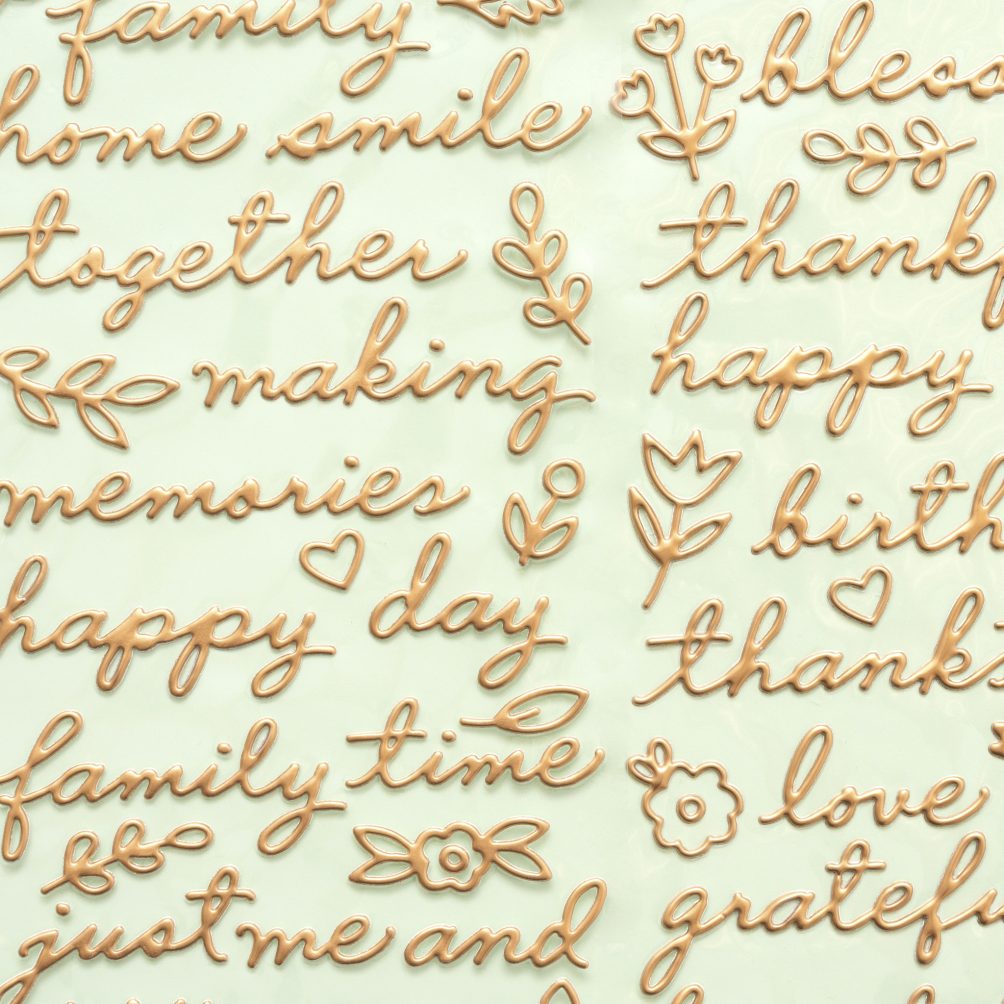 family
home smile
together
making
memories
happy day
family time
just me and
bless
thank
happy
birth
thanks
love
gratef